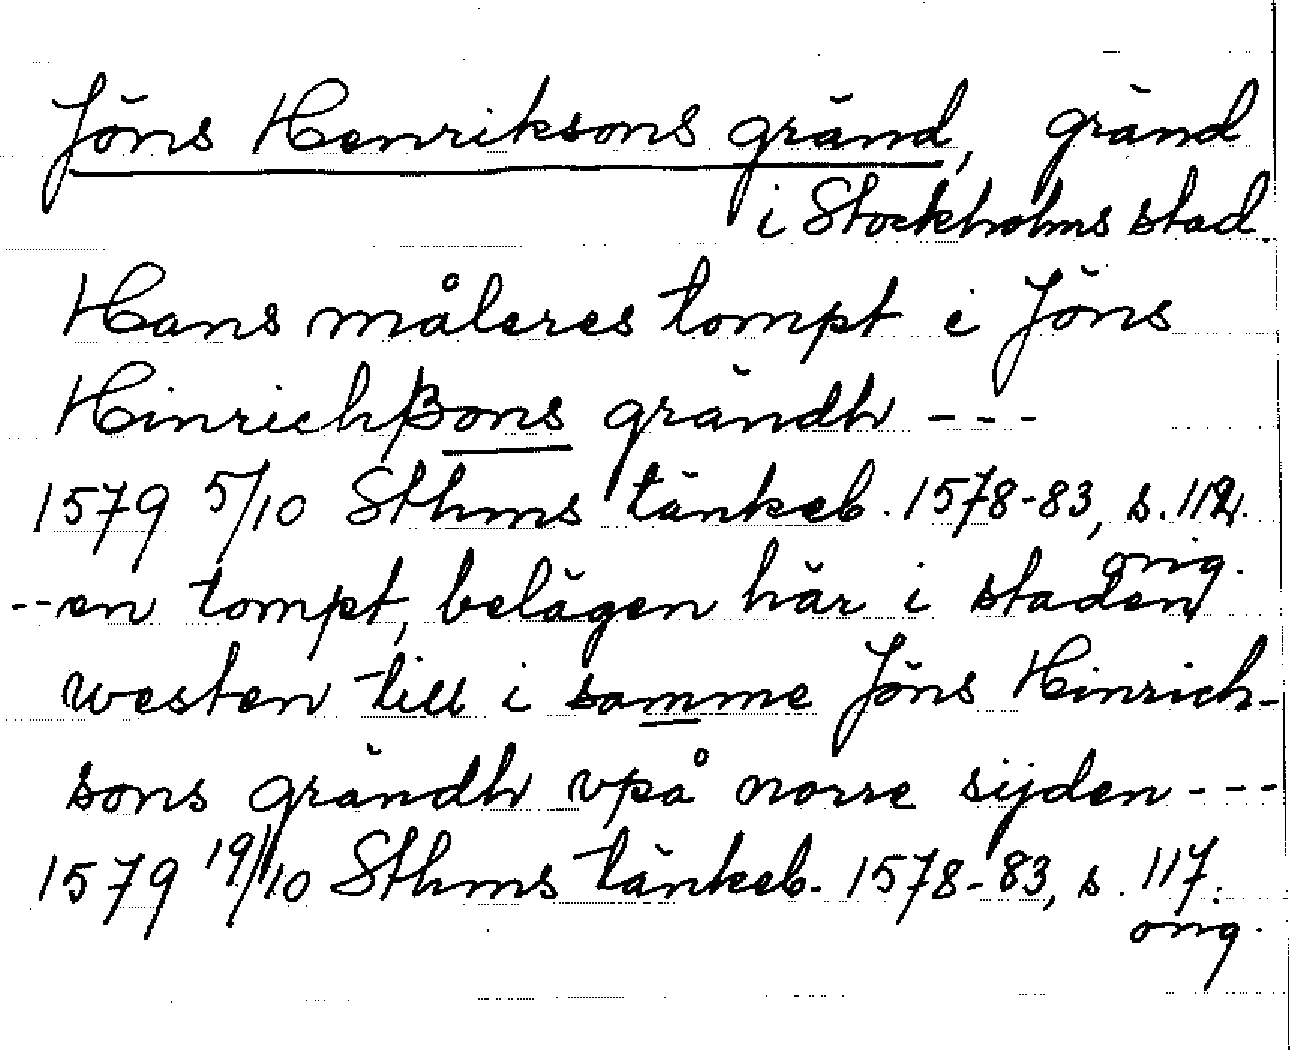 Jöns Henriksons gränd, gränd
i Stockholms stad.
Hans måleres tompt i Jöns
Hinrichßons grändh ---
1579 5/10 Sthms tänkeb. 1578-83, s. 112.
orig.
--en tompt, belägen här i staden
westen till i samme Jöns Hinrich-
sons grändh vpå norre sijden ---
1579 19/10 Sthms tänkeb. 1578-83, s. 117.
orig.